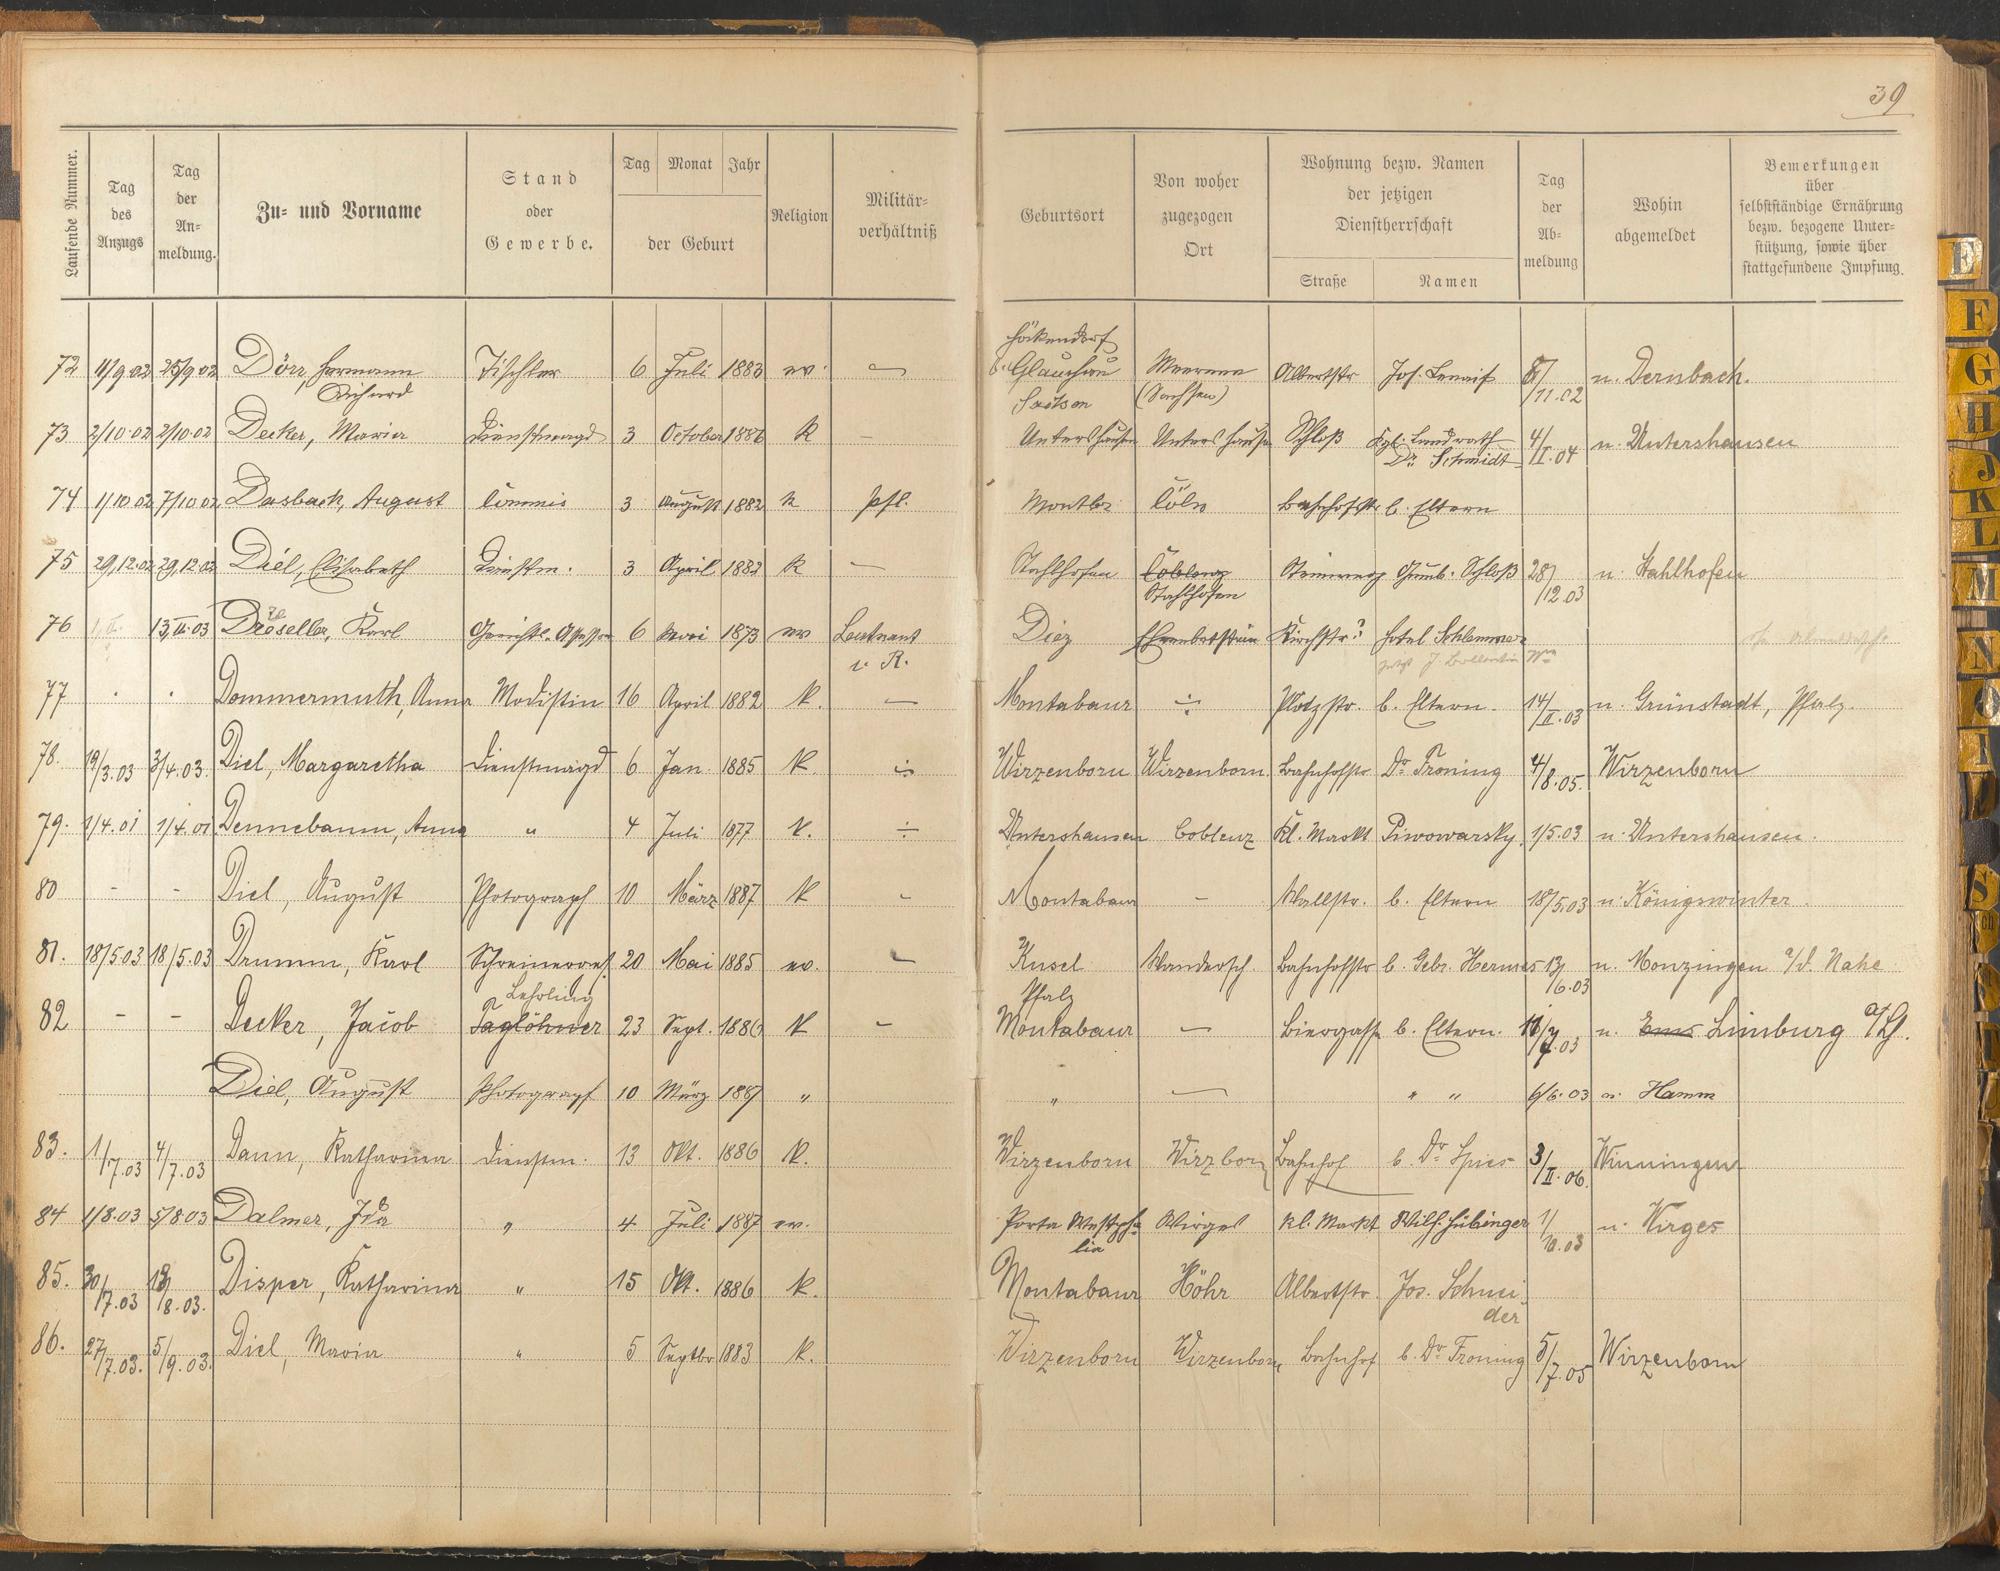 39
Laufende Nummer.
Tag des Anzugs
Tag der An-meldung.
Zu- und Vorname
Stand oder Gewerbe.
Tag Monat Jahr
der Geburt
Religion
Militär-verhältniß
Geburtsort
Von woher zugezogen Ort
Wohnung bezw. Namen der jetzigen Dienstherrschaft
Straße Namen
Tag der Ab-meldung
Wohin abgemeldet
Bemerkungen über selbstständige Ernährung bezw. bezogene Unter-stützung, sowie über stattgefundene Impfung.
72 11/9.02 25/9.02 Dörr, Hermann Richard Tischler 6 Juli 1883 ev. — Glauchau Sachsen Meerane (Sachsen) Albertstr Jos. 8/11.02 n. Dernbach.
73 2/10.02 2/10.02 Decker, Maria Dienstmagd 3 October 1886 k — Untershausen Untershausen Schloß Kgl. Landrath Dr. Schmidt 4/II.04 n. Untershausen
74 1/10 02 7/10 02 Dasbach, August Commis 3 August 1882 k pfl. Montbr. Cöln Bahnhofstr b. Eltern
75 29,12.02 29,12.02 Diel, Elisabeth Dienstm. 3 April 1882 k — Stahlhofen Coblenz Stahlhofen Steinweg Gumb. Schloß 28/12.03 n. Stahlhofen
76 13,II.03 Karl Gerichts-Assessor 6 Mai 1873 ev Leutnant d. R. Diez Ehrenbreitstein Kirchstr? Hotel Schlemmer
77 . . Dommermuth, Anna Modistin 16 April 1882 k. — Montabaur ÷ Plötzstr. b. Eltern. 14/II.03 n. Grünstadt, Pfalz.
78. 19/3.03 3/4.03. Diel, Margaretha Dienstmagd 6 Jan. 1885 k. ÷ Wirzenborn Wirzenborn Bahnhofstr Dr Froning 4/8.05. Wirzenborn
79. 1/4.01 1/4.01 Dennebaum, Anna " 4 Juli 1877 k. ÷ Untershausen Coblenz Kl. Markt Piwowarsky. 1/5.03 n. Untershausen.
80 - - Diel, August Photograph 10 März 1887 k - Montabaur - Wallstr. b. Eltern 18/5.03 n. Königswinter.
81. 18/5.03 18/5.03 Drumm, Karl Schreinerges. 20 Mai 1885 ev. - Kusel Pfalz Wandersch. Bahnhofstr b. Gebr. Hermes 13/6.03 n. Monzingen a/d. Nahe
82 - - Decker, Jacob Taglöhner Lehrling 23 Sept. 1886 k - Montabaur — Biergasse b. Eltern. 11/7.03 n. Ems Limburg a/L.
Diel, August Photograph 10 März 1887 " " — " " 6/6.03 n. Hamm
83. 1/7.03 4/7.03 Dann, Katharina Dienstm. 13 Okt. 1886 k. Wirzenborn Wirzborn Bahnhof b. Dr Spies 3/II.06. Winningen
84 1/8.03 5/8.03 Dalmer, Ida " 4 Juli 1887 ev. Porta Westphalia Wirges Kl. Markt Wilh. Hübinger 1/10.03 n. Wirges
85. 30/7.03 13/8.03. Disper, Katharina " 15 Okt. 1886 k. Montabaur Höhr Albertstr. Jos. Schneider
86. 27/7.03. 5/9.03. Diel, Maria " 5 Septbr 1883 k. Wirzenborn Wirzenborn Bahnhof b. Dr Froning 5/7.05 Wirzenborn
E
F
G
H
J
K
L
M
N
O
S